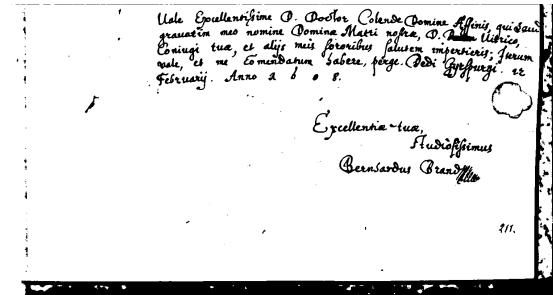 Vale Excellentissime D. Doctor Colende Domine Affinis, qui haud
gravatim meo nomine Dominæ Matri nostræ, D. Vitrico,
Coniugi tuæ, et alijs meis sororibus salutem impertieris; Iterum
vale, et me Comendatum habere, perge. Dedi
Februarij. Anno 1608.
Excellentiæ tuæ,
Studiosissimus
Bernhardus Brand
211.